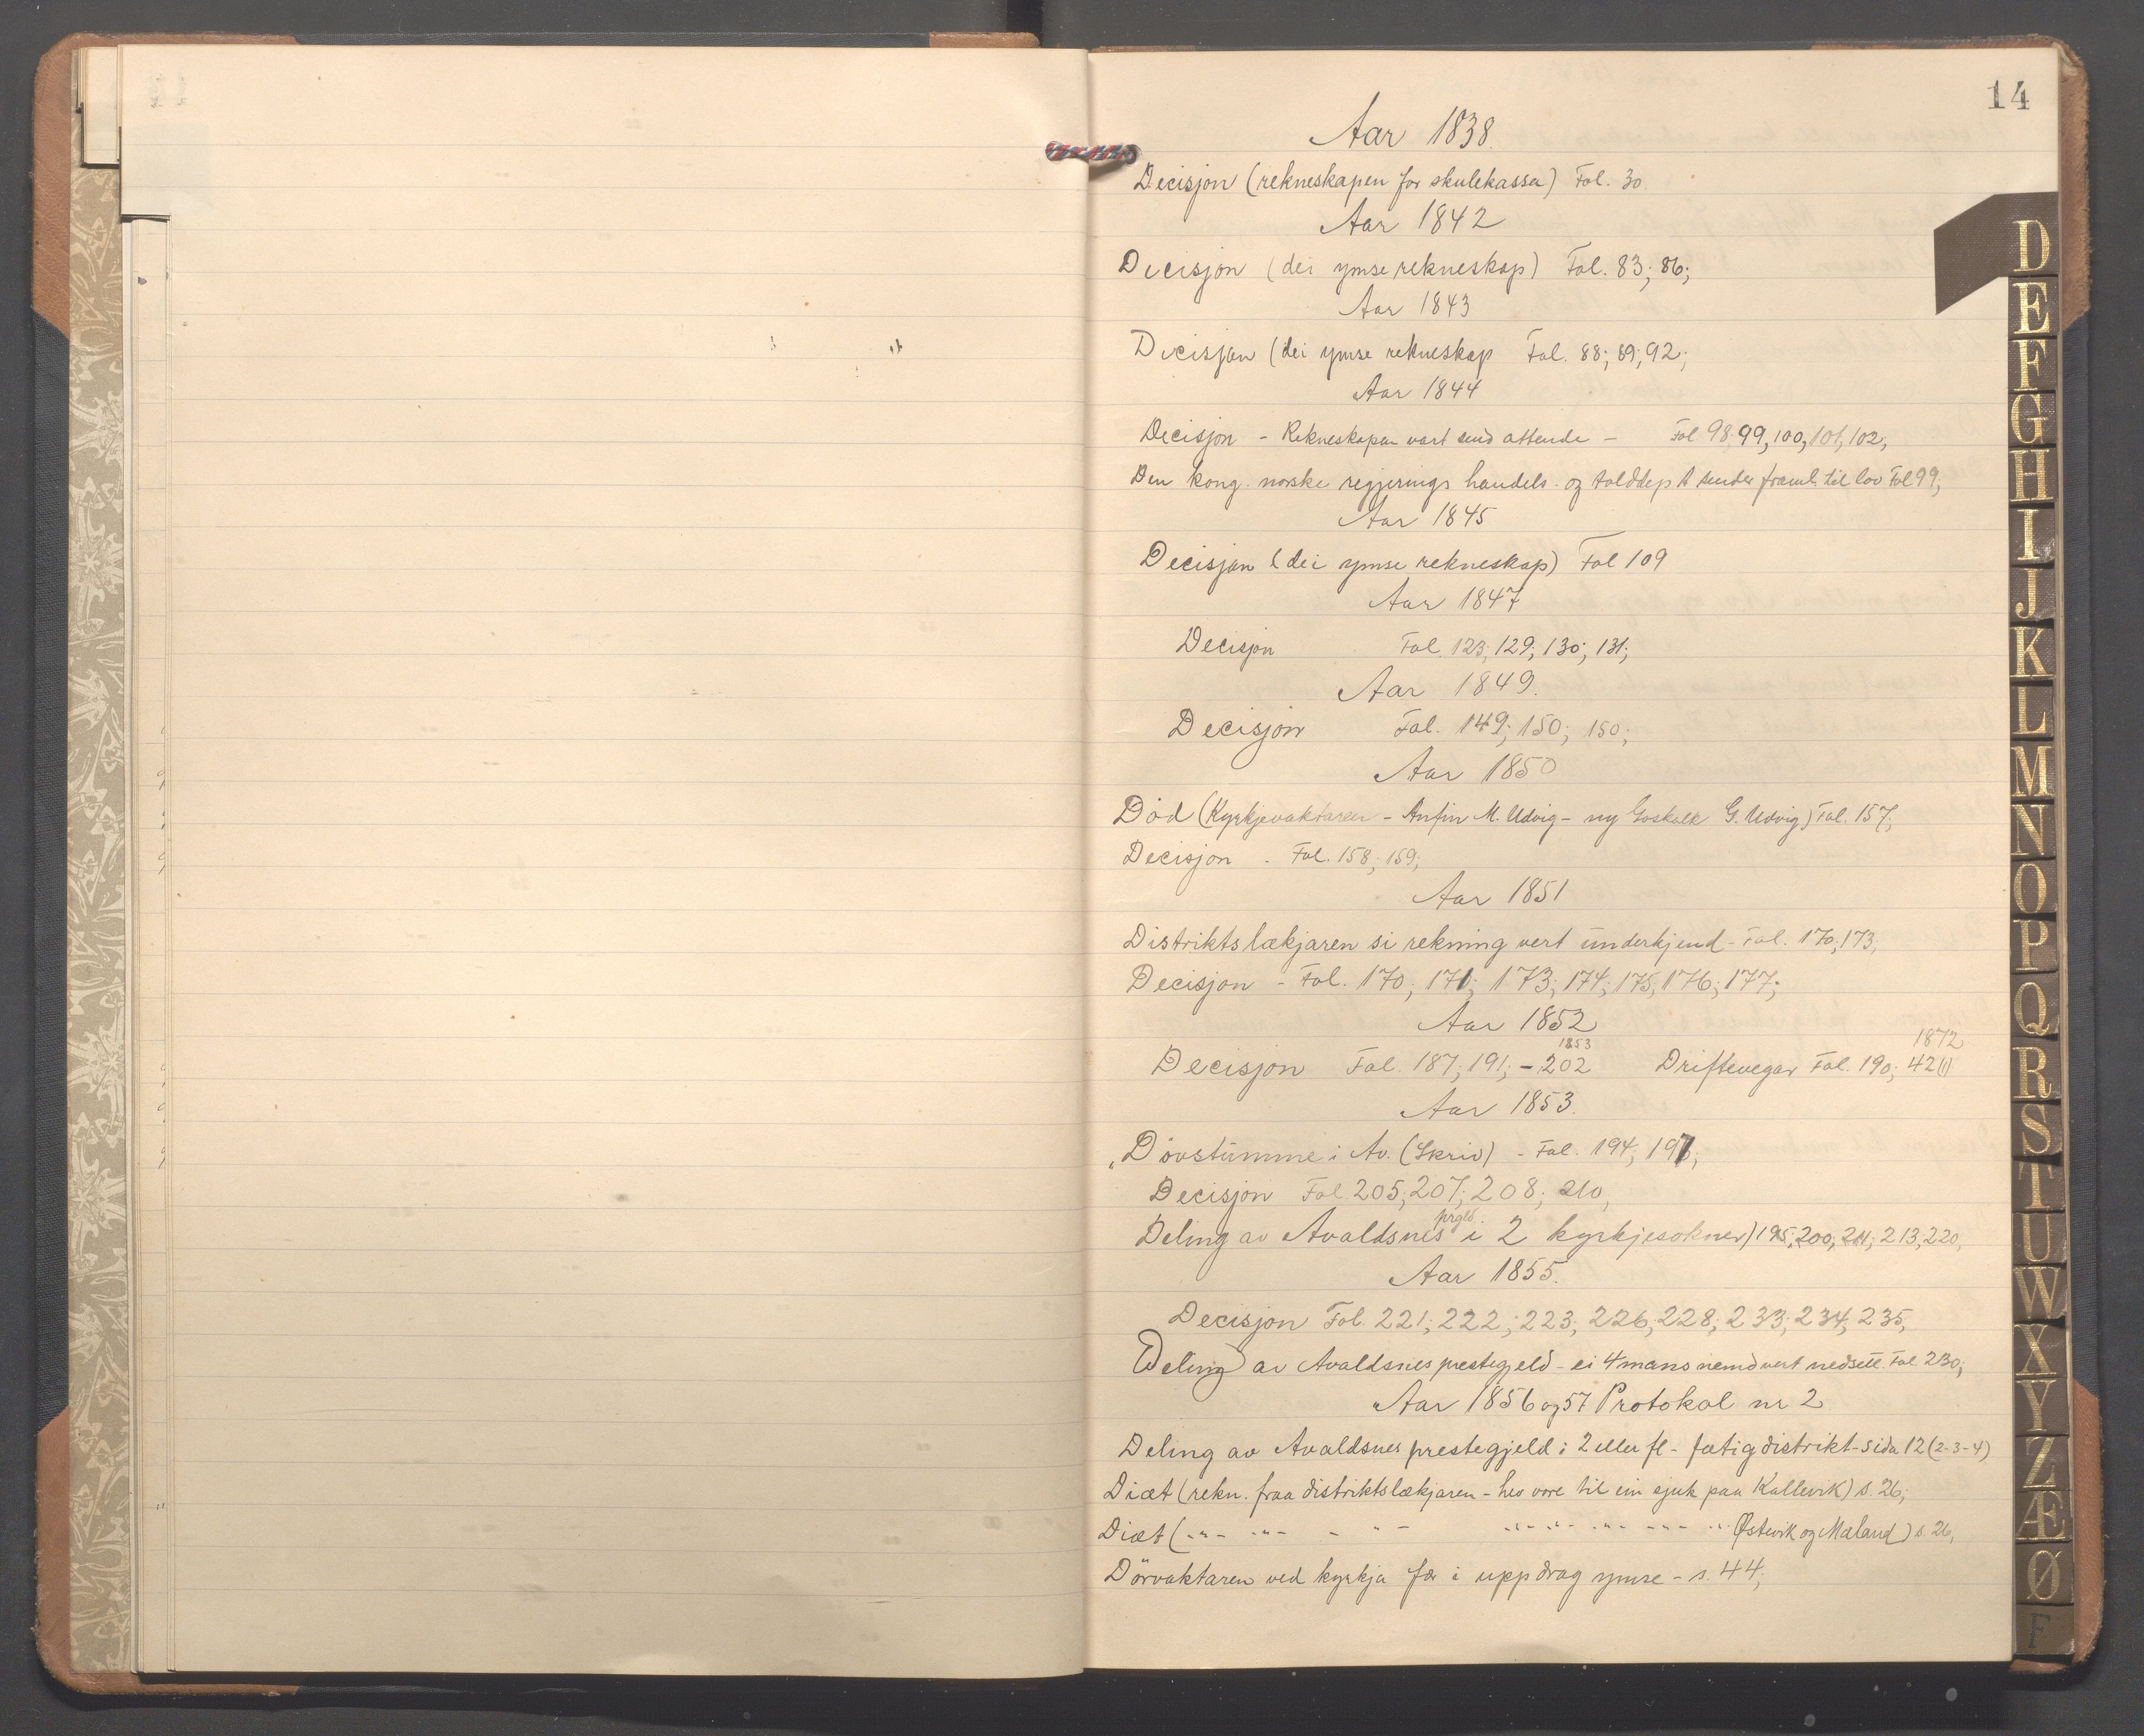 14
Aar 1838.
Decisjon (rekneskapen for skulekassa) Fol. 30.
Aar 1842
Decisjon (dei ymse rekneskap) Fol. 83; 86;
Aar 1843
Decisjon (dei ymse rekneskap Fol. 88; 89; 92;
Aar 1844
Decisjon - Rekneskapen vart send attende - Fol 98, 99, 100, 101, 102,
Den kong. norske regjerings handels- og tolddept sender framl. til lov Fol 99,
Aar 1845
Decisjon (dei ymse rekneskap) Fol 109
Aar 1847
Decisjon Fol. 123; 129; 130; 131;
Aar 1849.
Decisjon Fol. 149; 150; 150;
Aar 1850
Död (Kyrkjevaktaren - Anfin M. Udvig - ny Goskalk G. Udvig) Fol. 157,
Decisjon - Fol. 158; 159;
Aar 1851
Distriktslækjaren si rekning vert underkjend - Fol. 170; 173,
Decisjon - Fol. 170; 171; 173; 174; 175, 176; 177;
Aar 1852
1853 1872
Decisjon Fol. 187; 191; - 202 Driftevegar Fol. 190; 42(1)
Aar 1853.
Dövstumme i Av. (Skriv) - Fol. 194;
Decisjon Fol. 205; 207; 208; 210,
prgld.
Deling av Avaldsnes i 2 kyrkjesokner) 195; 200; 211; 213; 220,
Aar 1855.
Decisjon Fol. 221; 222; 223; 226; 228; 233; 234, 235,
Deling av Avaldsnes prestegjeld - ei 4mans nemd vert nedsett Fol. 230;
Aar 1856 og 57 Protokol nr 2
Deling av Avaldsnes prestegjeld i 2 eller fl - fatigdistrikt - sida 12 (2-3-4)
Diæt (rekn. fraa distriktslækjaren - hev vore til ein sjuk paa Kallevik) s. 26;
Diæt (-"- -"- - -"- -"- -"- -"- -"- -" Østevik og Mæland) s. 26,
Dörvaktaren ved kyrkja fær i uppdrag ymse - s. 44;
D
E
F
G
H
I
J
K
L
M
N
O
P
Q
R
S
T
U
W
X
Y
Z
Æ
Ø
F